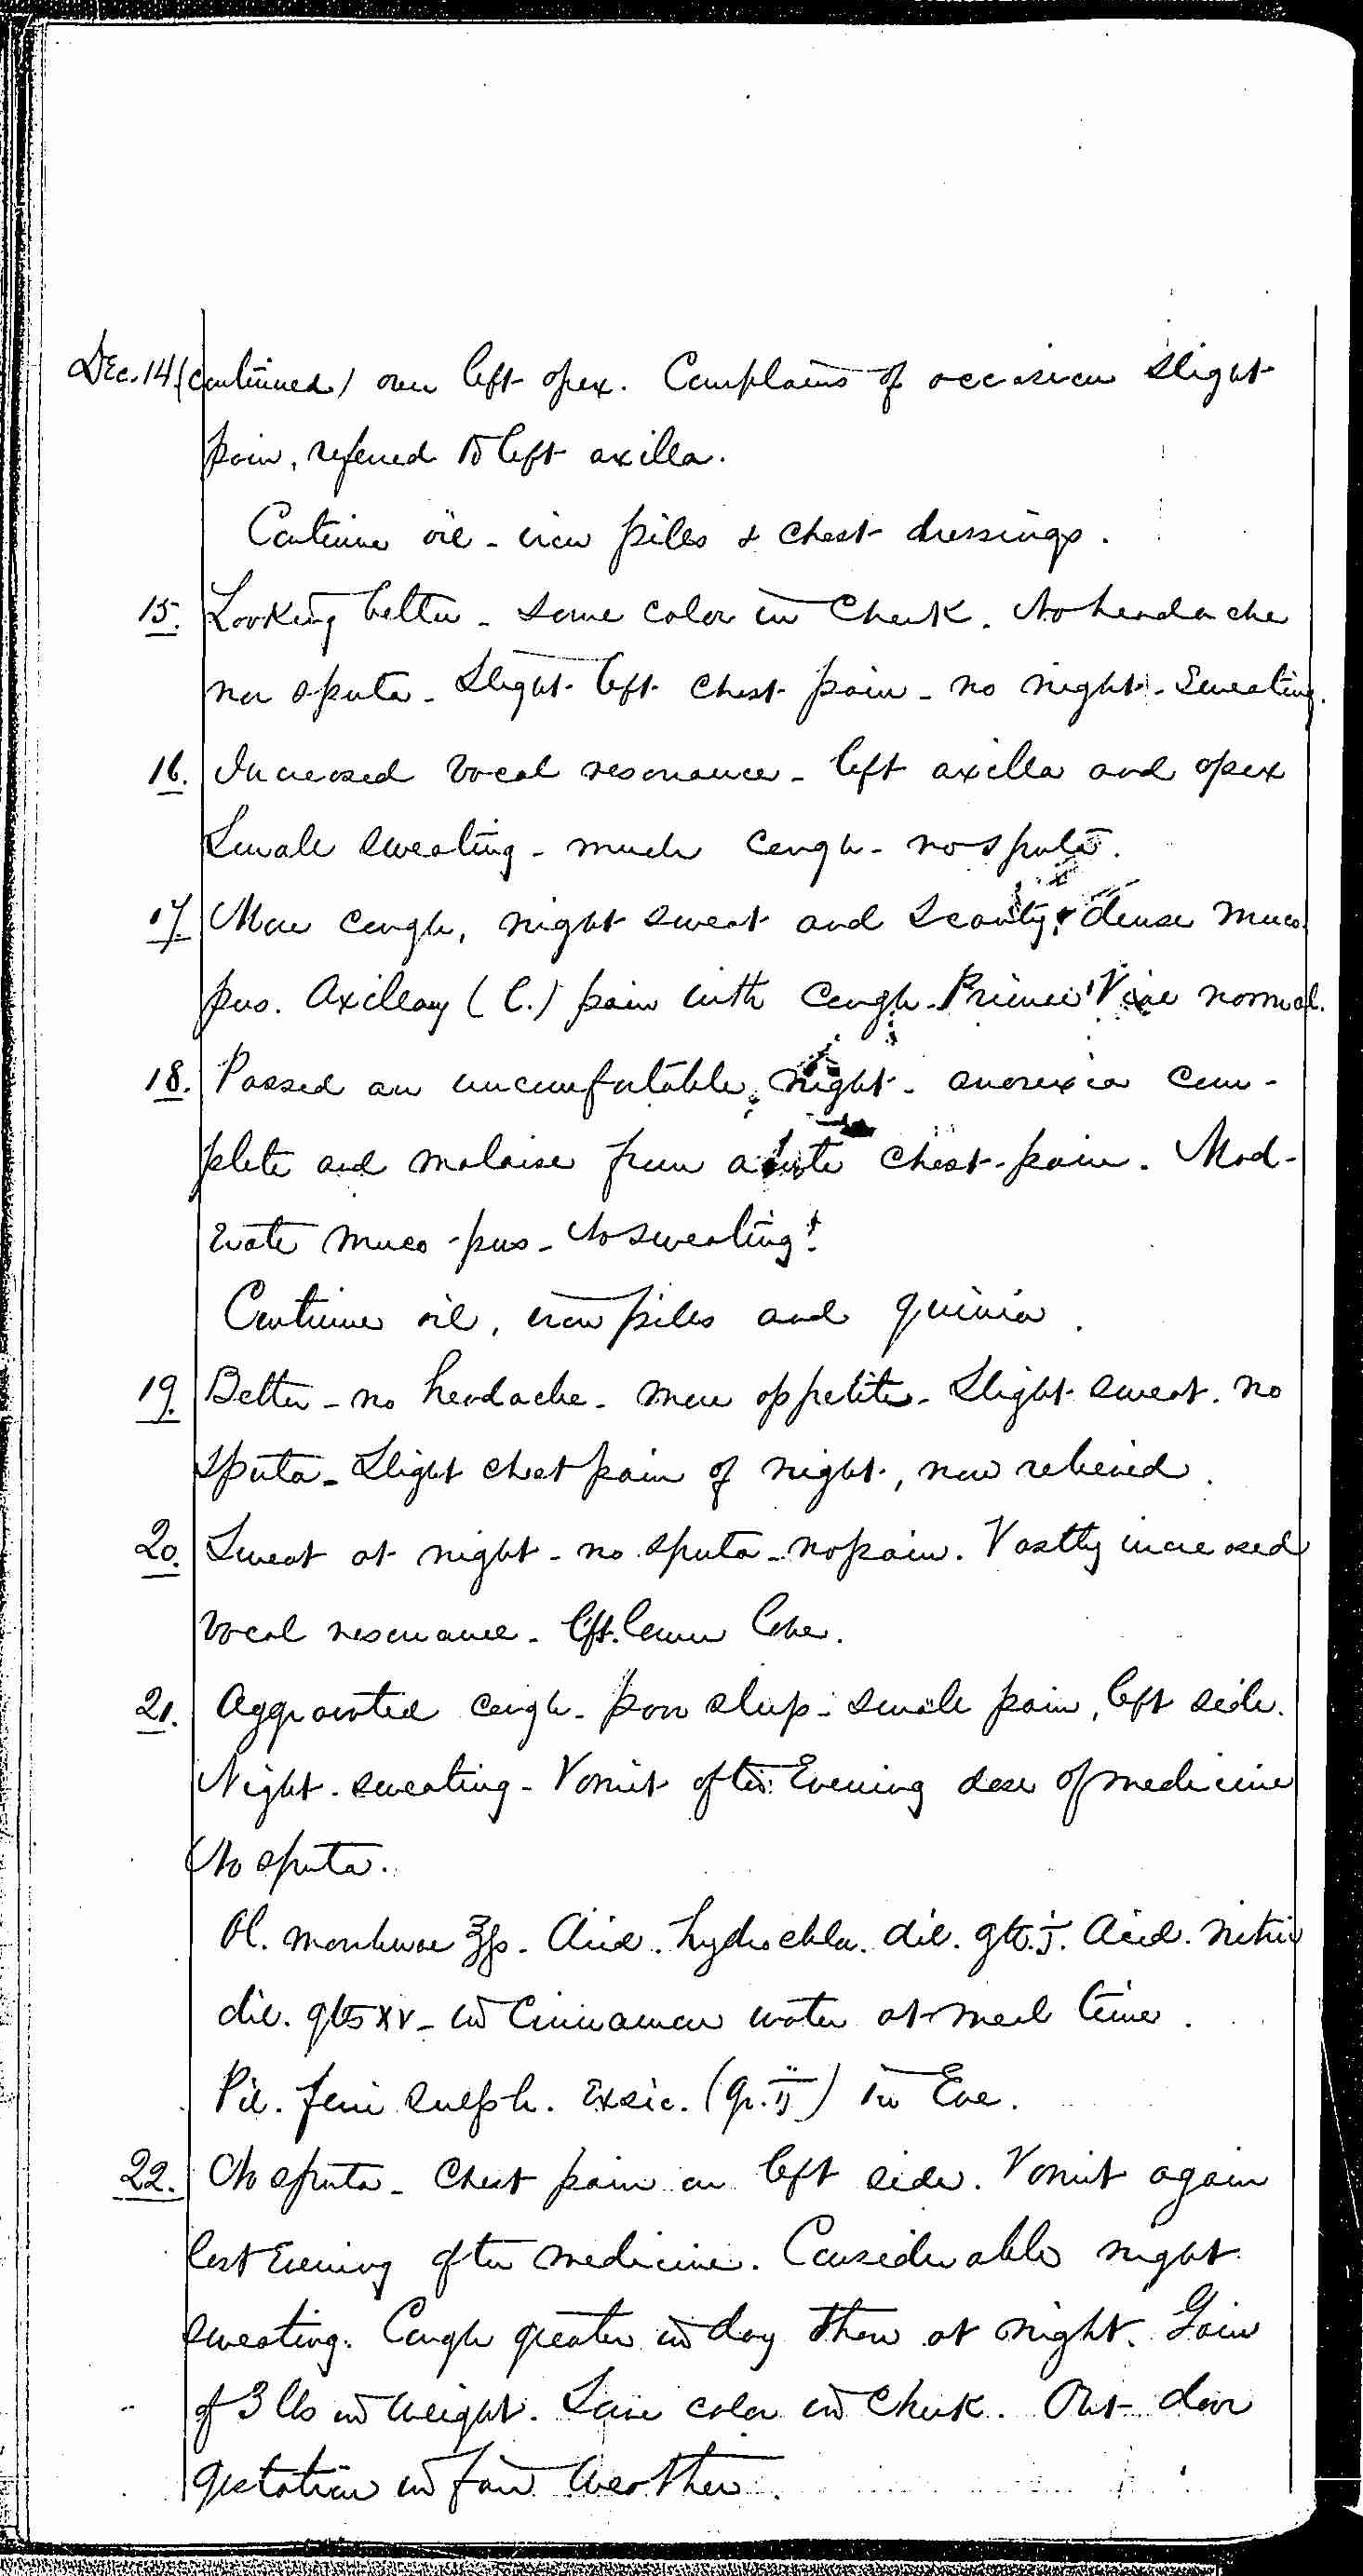 Dec. 14 (continued) over left apex. Complains of occasion slight
pain, referred to left axilla.
Continue oil - iron pills & chest dressings.
15. Looking better - some color in cheek. No headache
nor sputa - Slight left chest pain - no night-sweating.
16. Increased vocal resonance - left axilla and apex
Small sweating - much cough - no sputa.
17. More cough, night sweat and scanty, dense muco
pus. Axillary (l.) pain with cough. Primae Viae normal.
18. Passed an uncomfortable night - anorexia com-
plete and malaise from acute chest-pain. Mod-
erate muco-pus - No sweating!
Continue oil, iron pills and quinia.
19. Better - no headache - more appetite - Slight sweat. no
sputa - Slight chest pain of night, now relieved.
20. Sweat at night - no sputa - no pain. Vastly increased
vocal resonance - lft. lower lobe.
21. Aggravated cough - poor sleep - small pain, left side.
Night-sweating - Vomit after Evening dose of medicine
No sputa.
Ol. morrhuae ℥ss. Acid. hydrochlo. dil. gtt. j. Acid. nitric
dil. gtts xv - in Cinnamon water at meal time.
Pil. ferri sulph. exsic. (gr. ij) in Eve.
22. No sputa - Chest pain on left side. Vomit again
last Evening after medicine. Considerable night
sweating. Cough greater in day than at night. Gain
of 3 lbs in weight. Some color in cheek. Out-door
gestation in fair weather.